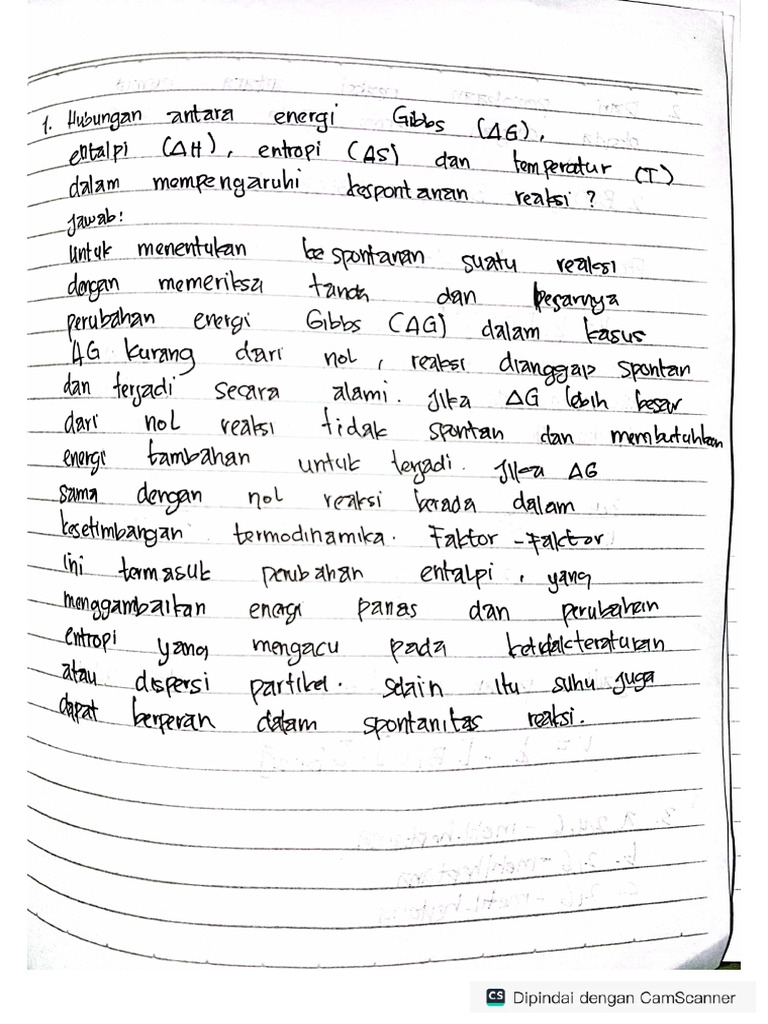 1. Hubungan antara energi Gibbs (ΔG),
entalpi (ΔH), entropi (ΔS) dan temperatur (T)
dalam mempengaruhi kespontanan reaksi?
Jawab:
Untuk menentukan kespontanan suatu reaksi
dengan memeriksa tanda dan besarnya
perubahan energi Gibbs (ΔG) dalam kasus
ΔG kurang dari nol, reaksi dianggap spontan
dan terjadi secara alami. Jika ΔG lebih besar
dari nol reaksi tidak spontan dan membutuhkan
energi tambahan untuk terjadi. Jika ΔG
sama dengan nol reaksi berada dalam
kesetimbangan termodinamika. Faktor-Faktor
ini termasuk perubahan entalpi, yang
menggambarkan energi panas dan perubahan
entropi yang mengacu pada ketidakteraturan
atau dispersi partikel. Selain itu suhu juga
dapat berperan dalam spontanitas reaksi.
CS Dipindai dengan CamScanner